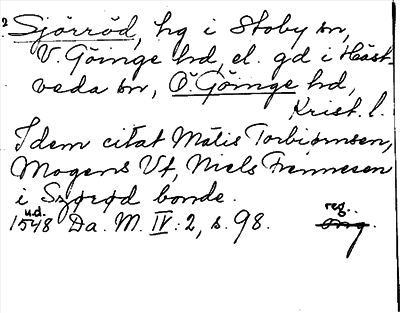 2 Sjörröd, hg i Stoby sn,
V. Göinge hd, el. gd i Häst-
veda sn, Ö. Göinge hd,
Krist. l.
Idem citat Matis Torbiørnsen,
Mogens Vf, Niels Frennesen
i Szørød bonde.
u.d. reg.
1548 Da. M. IV: 2, s. 98.